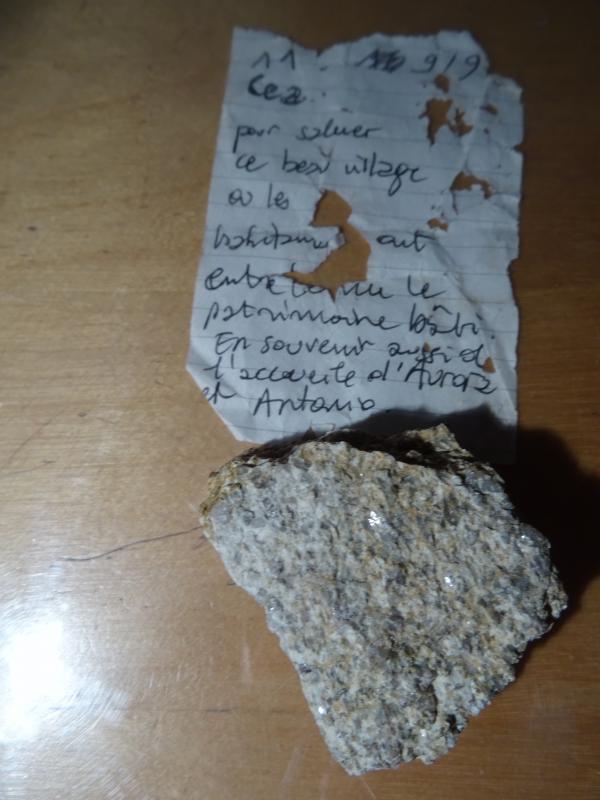 Cea.
pour saluer
ce beau village
où les
habitants ont
entretenu le
patrimoine bâti.
En souvenir aussi de
l'accueile d'Aurora
et Antonio.